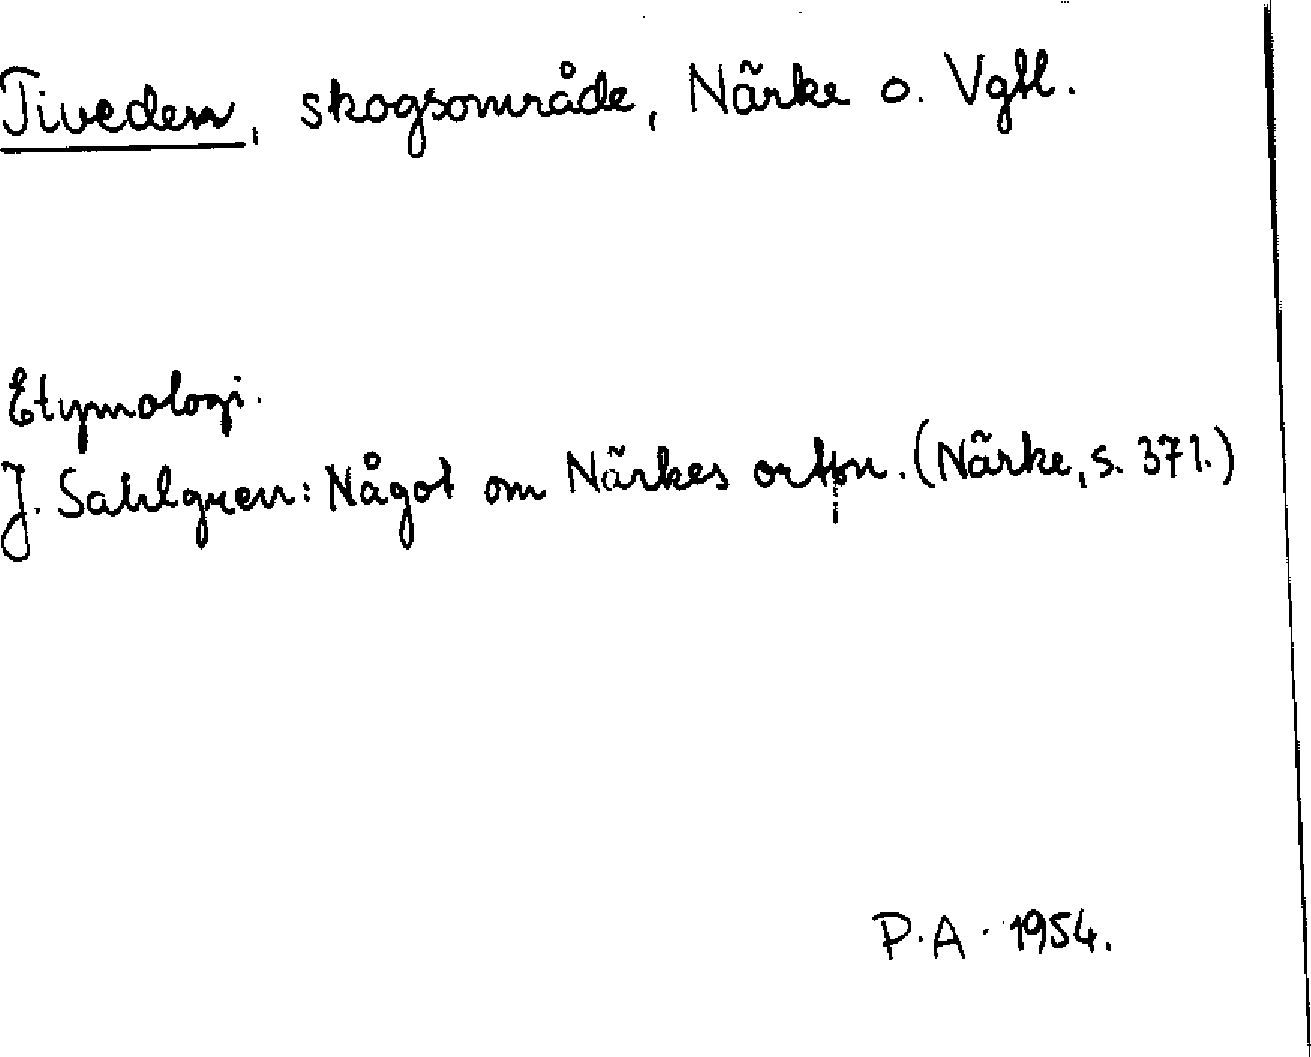 Tiveden, skogsområde, Närke o. Vgtl.
Etymologi.
J. Sahlgren: Något om Närkes ortsn. (Närke, s. 371.)
P.A. 1954.